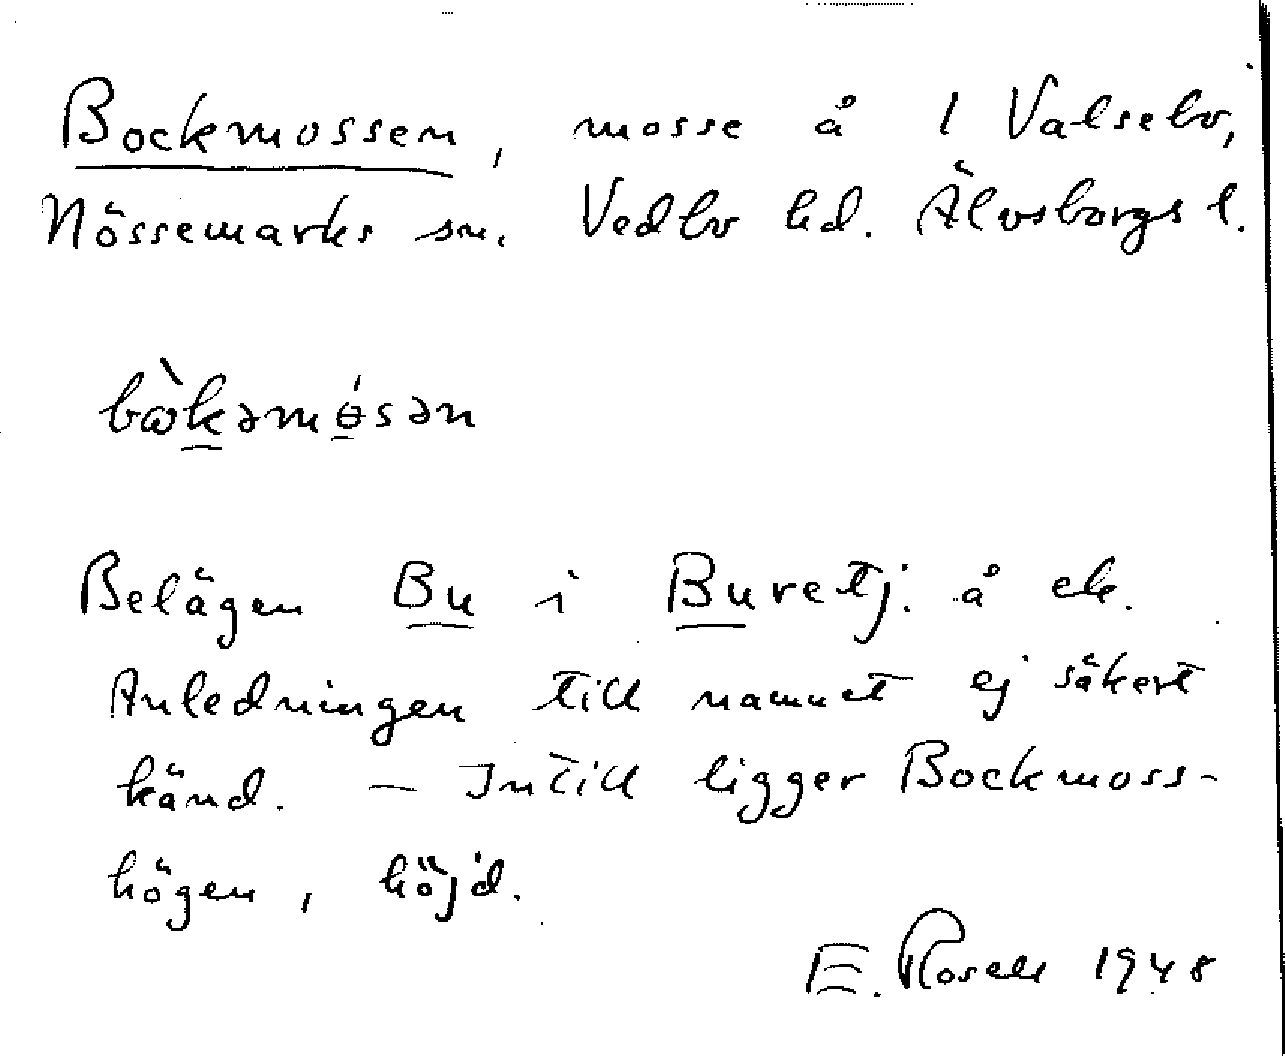 Bockmossen, mosse å 1 Valsebo,
Nössemarks sn. Vedbo hd. Älvsborgs l.
bὼkəmɵ́sən
Belägen Bu i Buretj. å ek.
Anledningen till namnet ej säkert
känd. — Intill ligger Bockmoss-
högen, höjd.
E. Rosell 1948